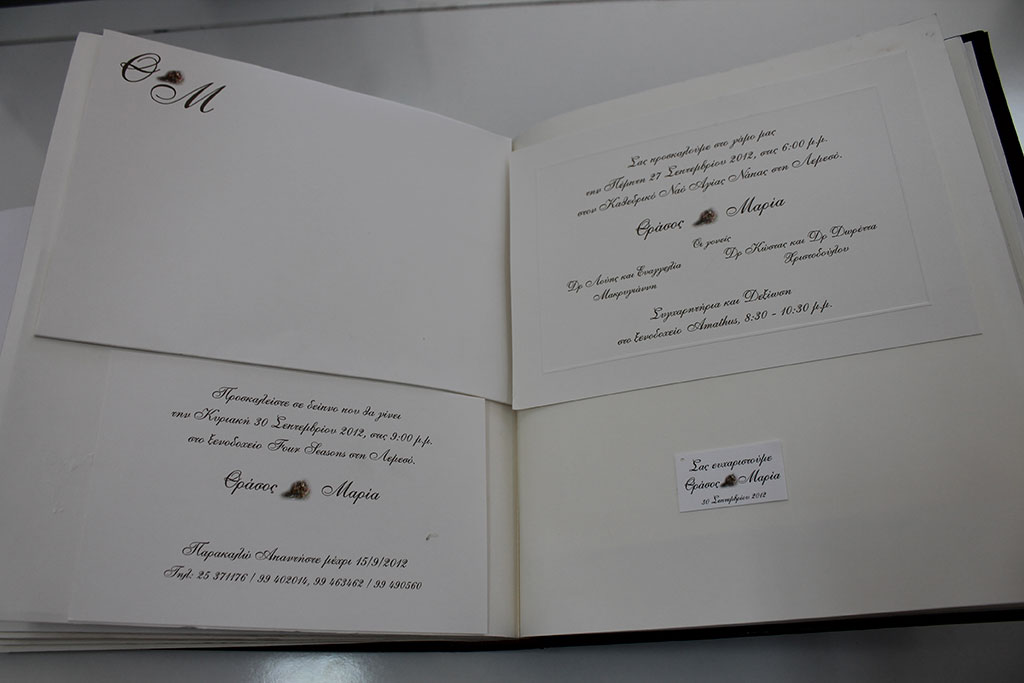 Θ Μ
Σας προσκαλούμε στο γάμο μας
την Πέμπτη 27 Σεπτεμβρίου 2012, στις 6:00 μ.μ.
στον Καθεδρικό Ναό Αγίας Νάπας στη Λεμεσό.
Θράσος Μαρία
Οι γονείς
Δρ Λούης και Ευαγγελία
Μακρυγιάννη
Δρ Κώστας και Δρ Δωρέττα
Χριστοδούλου
Συγχαρητήρια και Δεξίωση
στο ξενοδοχείο Amathus, 8:30 - 10:30 μ.μ.
Προσκαλείστε σε δείπνο που θα γίνει
την Κυριακή 30 Σεπτεμβρίου 2012, στις 9:00 μ.μ.
στο ξενοδοχείο Four Seasons στη Λεμεσό.
Θράσος Μαρία
Παρακαλώ Απαντήστε μέχρι 15/9/2012
Τηλ: 25 371176 / 99 402014, 99 463462 / 99 490560
Σας ευχαριστούμε
Θράσος Μαρία
30 Σεπτεμβρίου 2012